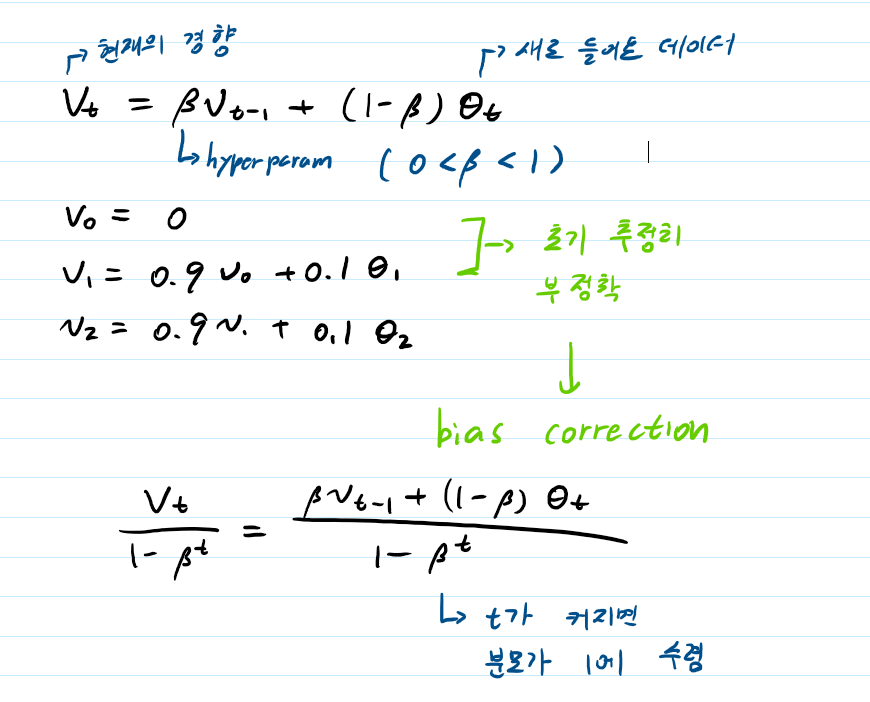 현재의 경향
새로 들어온 데이터
V_t = βV_{t-1} + (1-β) θ_t
hyperparam (0<β<1)
V_0 = 0
V_1 = 0.9 V_0 + 0.1 θ_1
초기 추정치
부정확
V_2 = 0.9 V_1 + 0.1 θ_2
bias correction
V_t / (1-β^t) = (βV_{t-1} + (1-β) θ_t) / (1-β^t)
t가 커지면
분모가 1에 수렴